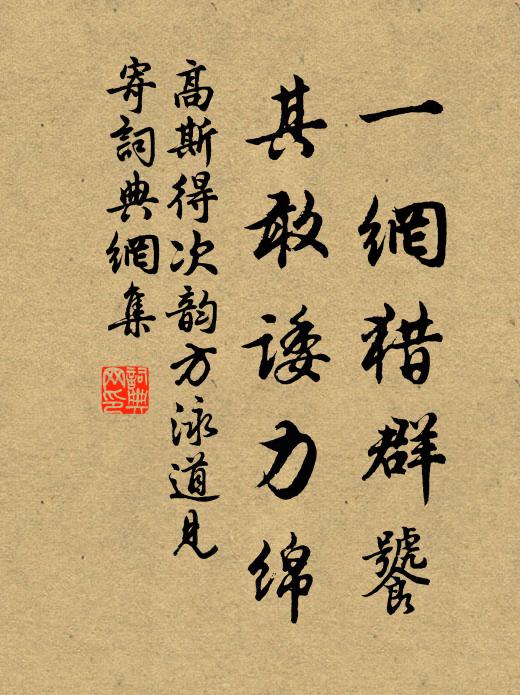 一網猎群饕
其敢諉力绵
高斯得次韵方泳道見
寄詞典網集
詞典
网印